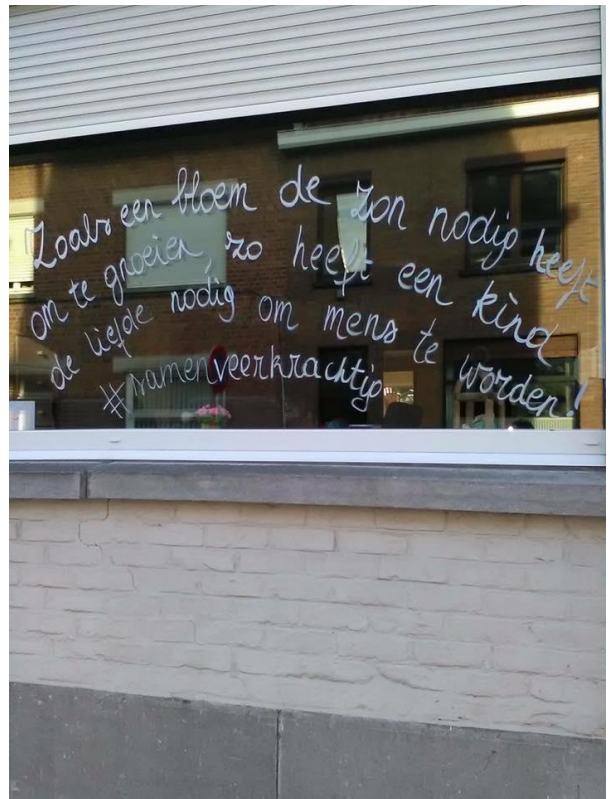 Zoals een bloem de zon nodig heeft
om te groeien, zo heeft een kind
de liefde nodig om mens te worden!
#samenveerkrachtig